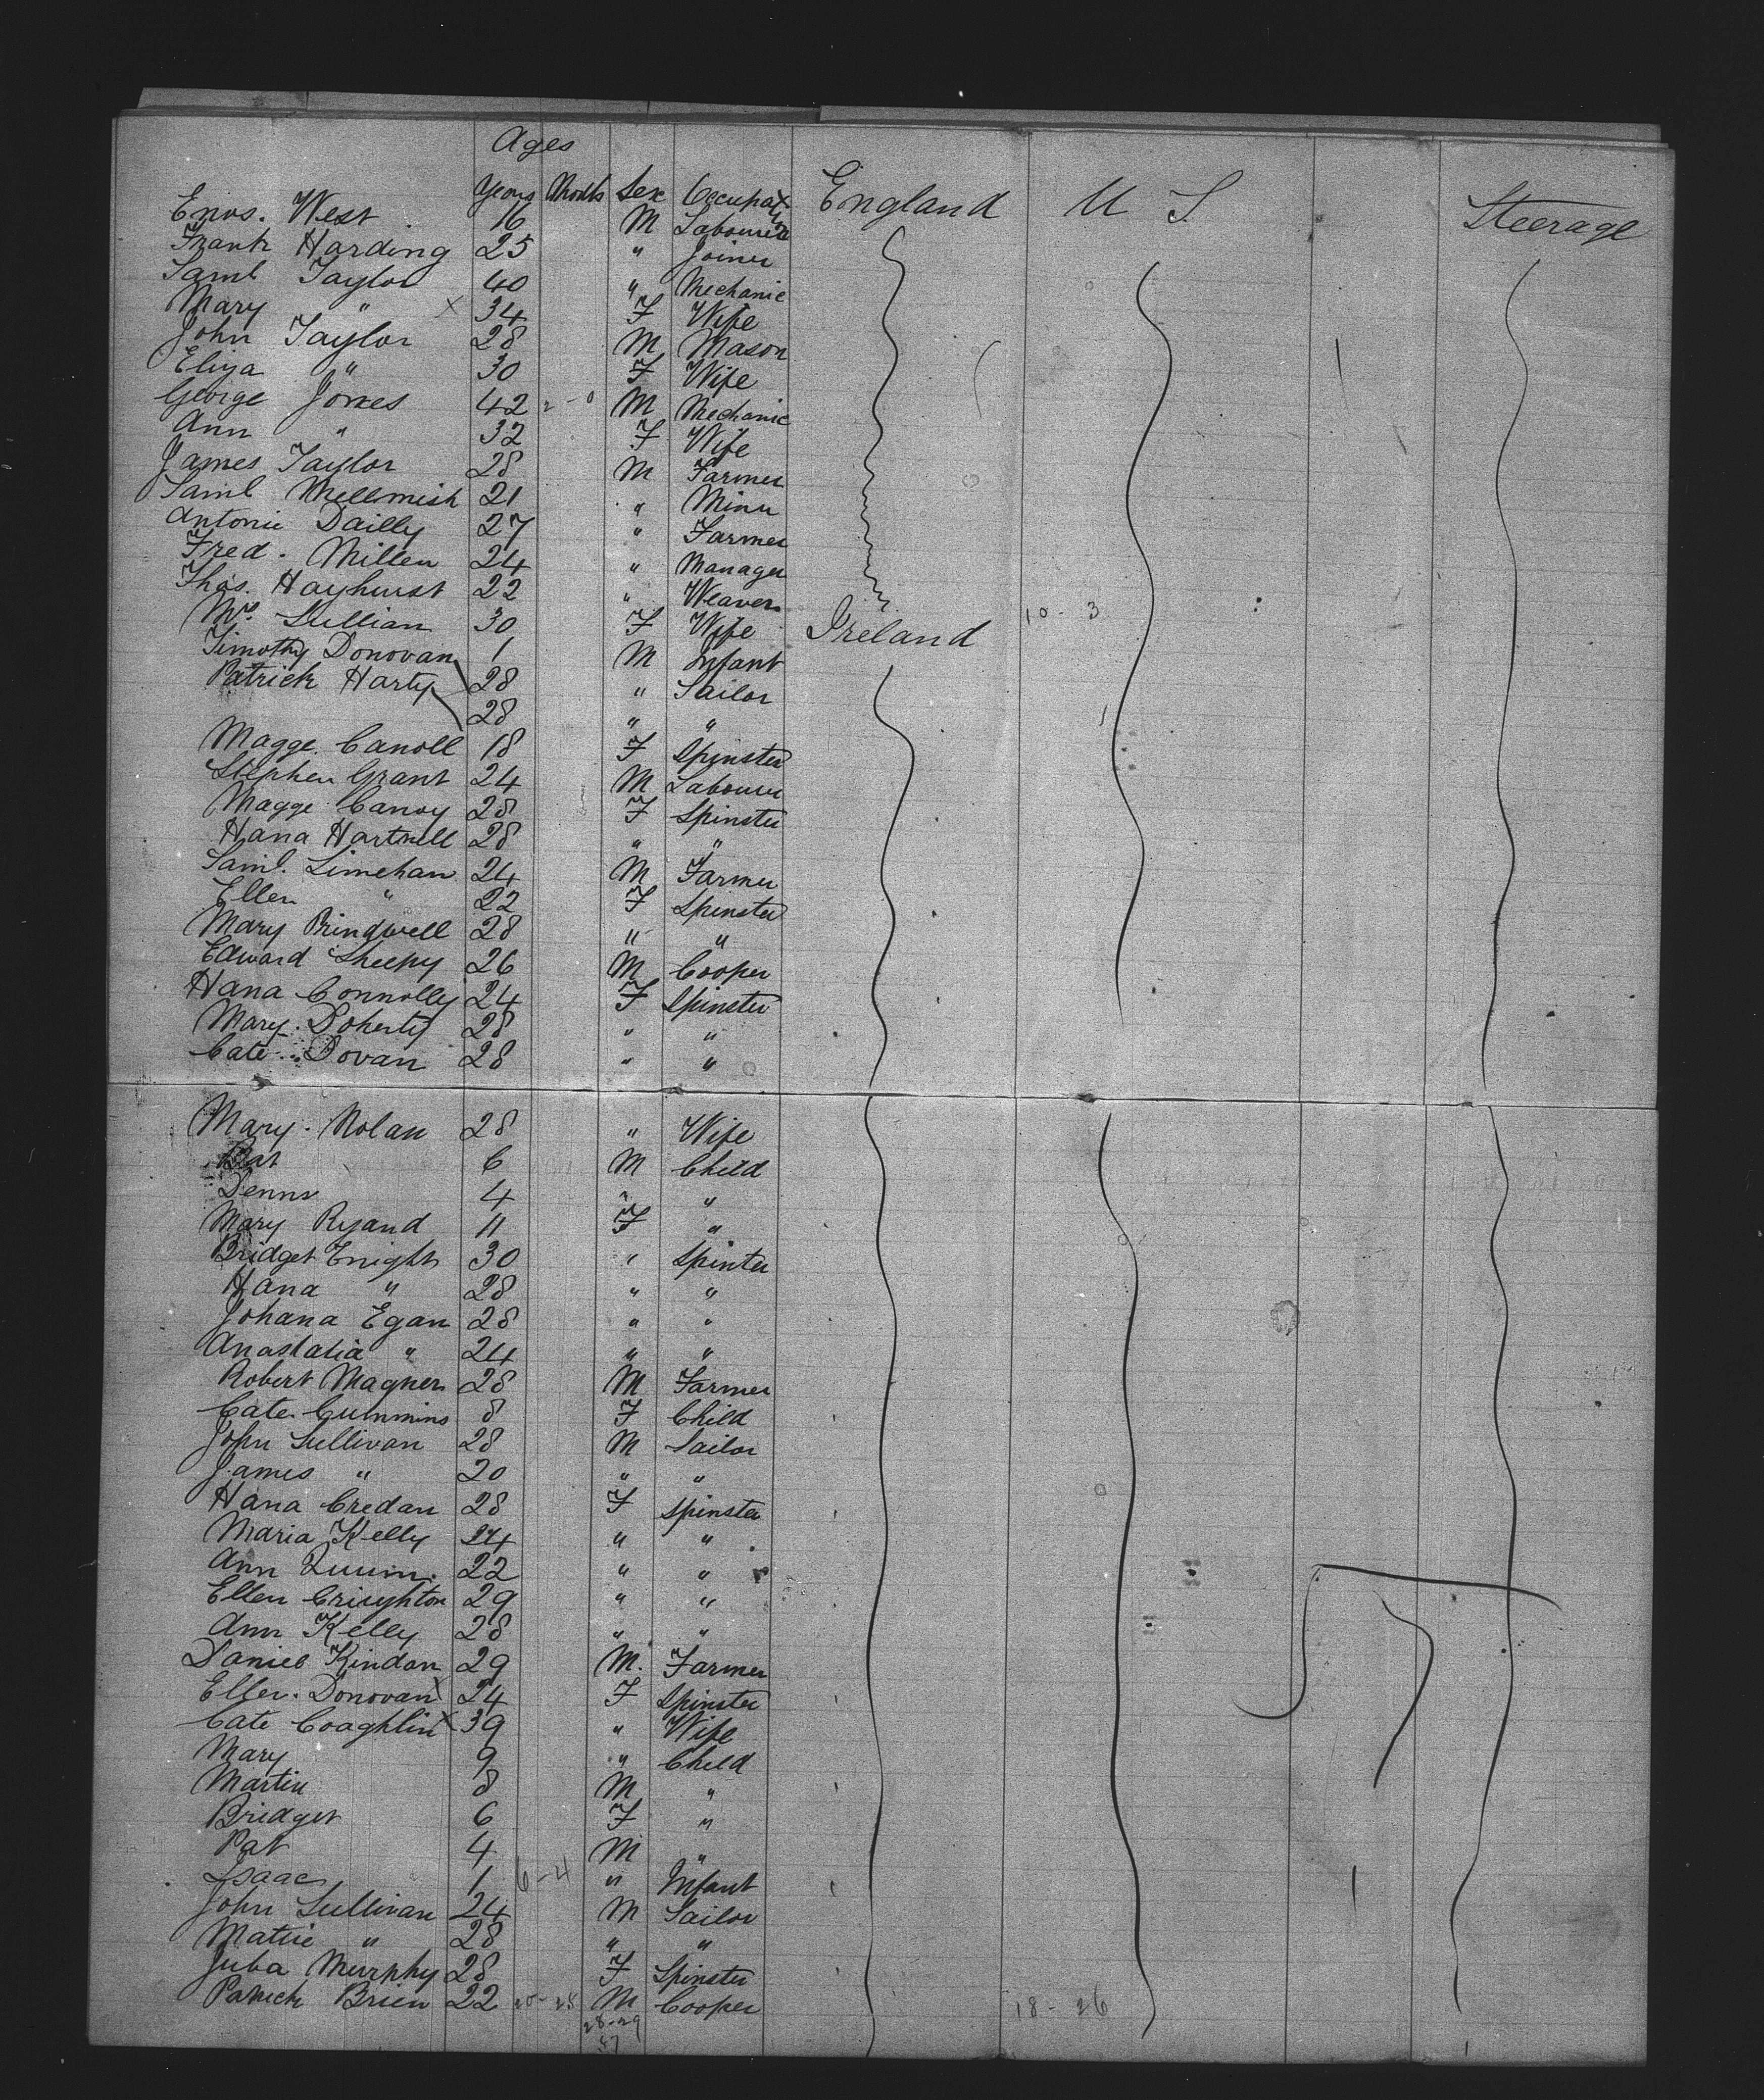 Ages
Years Months Sex Occupat England U S Steerage
Enos. West 16 M Labourer
Frank Harding 25 " Joiner
Saml Taylor 40 " Mechanic
Mary " x 34 F Wife
John Taylor 28 M Mason
Eliza " 30 F Wife
George Jones 42 2 - 0 M Mechanic
Ann " 32 F Wife
James Taylor 28 M Farmer
Saml Mellmish 21 " Miner
Antonie Dailly 27 " Farmer
Fred. Miller 24 " Manager
Thos. Hayhurst 22 " Weaver
Mrs. Sullian 30 F Wife Ireland 10 - 3
Timothy Donovan 1 M Infant
Patrick Harty 28 " Sailor
28 " "
Magge. Caroll 18 F Spinster
Stephen Grant 24 M Labourer
Magge Canoy 28 F Spinster
Hana Hartnell 28 " "
Saml. Limehan 24 M Farmer
Ellen " 22 F Spinster
Mary Prindwell 28 " "
Edward Sheehy 26 M Cooper
Hana Connolly 24 F Spinster
Mary. Doherty 28 " "
Cate. Dovan 28 " "
Mary. Nolan 28 " Wife
Pat 6 M Child
Denns 4 " "
Mary Ryand 11 F "
Bridget Enight 30 " Spinter
Hana " 28 " "
Johana Egan 28 " "
Anastatia " 24 " "
Robert Magner 28 M Farmer
Cate. Cummins 8 F Child
John Sullivan 28 M Sailor
James " 20 " "
Hana Credan 28 F Spinster
Maria Kelly 24 " "
Ann Quinn. 22 " "
Ellen Crieghton 29 " "
Ann Kelly 28 " "
Daniel Kindon 29 M. Farmer
Ellen. Donovan x 24 F Spinster
Cate Coaghlin x 39 " Wife
Mary 9 " Child
Martin 8 M "
Bridget 6 F "
Pat 4 M "
Isaac 1 6 - 4 " Infant
John Sullivan 24 M Sailor
Mattie " 28 " "
Juba Murphy 28 F Spinster
Patrick Brien 22 20 - 25 M Cooper 18 - 26
28 - 29
57